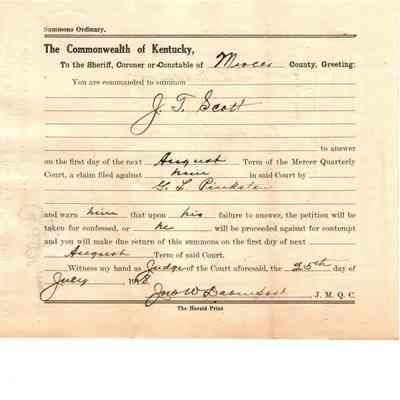 Summons Ordinary.
The Commonwealth of Kentucky,
To the Sheriff, Coroner or Constable of Mercer County, Greeting:
You are commanded to summon
J. T. Scott
to answer
on the first day of the next August Term of the Mercer Quarterly
Court, a claim filed against him in said Court by
G. L. Pinkston
and warn him that upon his failure to answer, the petition will be
taken for confessed, or he will be proceeded against for contempt
and you will make due return of this summons on the first day of next
August Term of said Court.
Witness my hand as Judge of the Court aforesaid, the 25th day of
July 19
Jno W J. M. Q. C.
The Herald Print